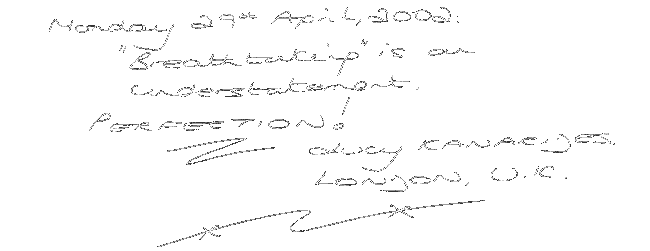 Monday 29th April, 2002.
"Breathtaking" is an
understatement.
PERFECTION!
LONDON, U.K.